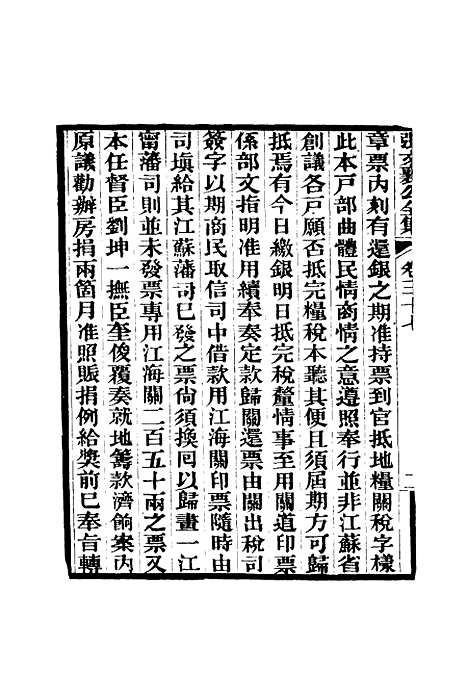 張文襄公全集 卷三十七 二
章票內刻有還銀之期准持票到官抵地糧關稅字樣
此本戶部曲體民情商情之意遵照奉行並非江蘇省
創議各戶願否抵完糧稅本聽其便且須屆期方可歸
抵焉有今日繳銀明日抵完稅釐情事至用關道印票
係部文指明准用續奉奏定款歸關還票由關出稅司
簽字以期商民取信司中借款用江海關印票隨時由
司塡給其江蘇藩司已發之票尙須換回以歸畫一江
甯藩司則並未發票專用江海關二百五十兩之票又
本任督臣劉坤一撫臣奎俊覆奏就地籌款濟餉案內
原議勸辦房捐兩箇月准照賑捐例給奬前已奉旨轉